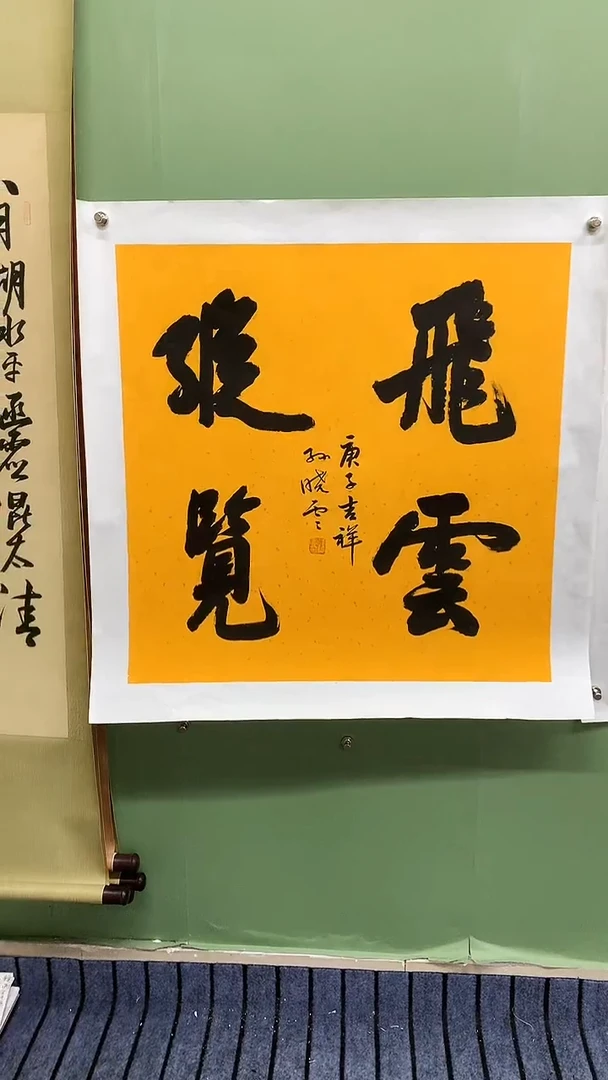 飛雲
縱覽
庚子吉祥
孫曉雲
八月湖水平
涵虛混太清